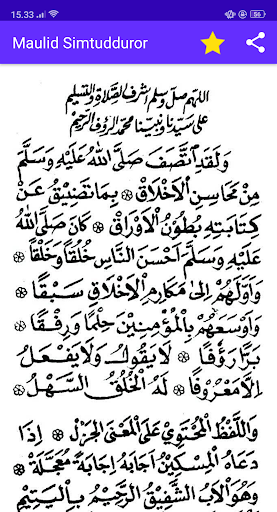 15.33
56
Maulid Simtudduror
اللهم صل وسلم اشرف الصلاة والتسليم
على سيدنا ونبينا محمد الرؤف الرحيم
وَلَقَدِ اتَّصَفَ صَلَّى اللهُ عَلَيْهِ وَسَلَّمَ
مِنْ مَحَاسِنِ الْاَخْلَاقِ ۞ بِمَا تَضِيْقُ عَنْ
كِتَابَتِهِ بُطُوْنُ الْاَوْرَاقِ ۞ كَانَ صَلَّى اللهُ
عَلَيْهِ وَسَلَّمَ اَحْسَنَ النَّاسِ خُلُقًا وَخَلْقًا ۞
وَاَوَّلَهُمْ اِلَى مَكَارِمِ الْاَخْلَاقِ سَبْقًا ۞
وَاَوْسَعَهُمْ بِالْمُؤْمِنِيْنَ حِلْمًا وَرِفْقًا ۞
بَرًّا رَؤُفًا ۞ لَا يَقُوْلُ وَلَا يَفْعَلُ
اِلَّا مَعْرُوْفًا ۞ لَهُ الْخُلُقُ السَّهْلُ ۞
وَاللَّفْظُ الْمُحْتَوِيْ عَلَى الْمَعْنَى الْجَزْلِ ۞ اِذَا
دَعَاهُ الْمِسْكِيْنُ اَجَابَهُ اِجَابَةً مُعَجَّلَةً ۞
وَهُوَ الْاَبُ الشَّفِيْقُ الرَّحِيْمُ بِالْيَتِيْمِ